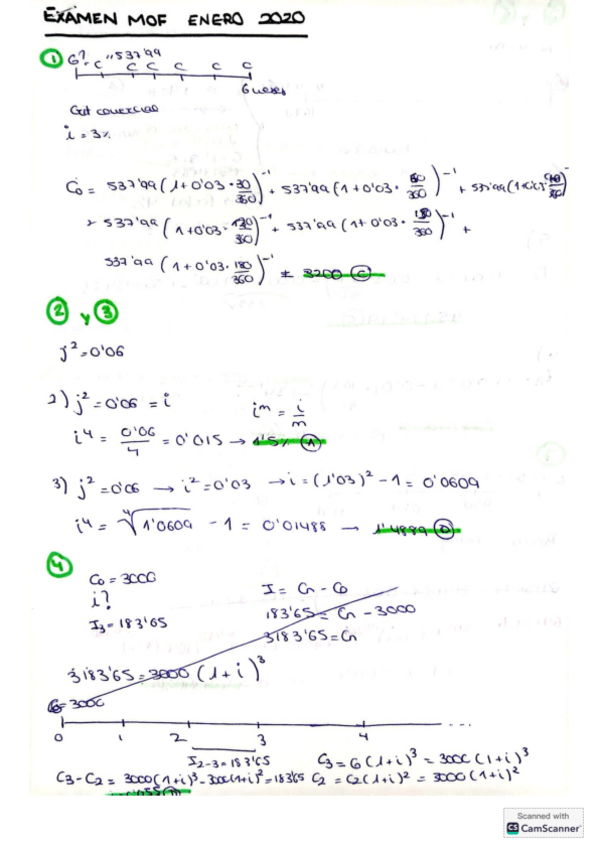 EXÁMEN MOF ENERO 2020
① G? C "537'99 C C C C C
6 meses
Cap comercial
i = 3%
C₀ = 537'99 (1+0'03·30/360)⁻¹ + 537'99 (1+0'03·60/360)⁻¹ + 537'99 (1+0'03·90/360)⁻
+ 537'99 (1+0'03·120/360)⁻¹ + 537'99 (1+0'03·150/360)⁻¹ +
537'99 (1+0'03·180/360)⁻¹ = 3200 Ⓒ
② y ③
j² = 0'06
2) j² = 0'06 = i iᵐ = i/m
i⁴ = 0'06/4 = 0'015 → 1'5% Ⓐ
3) j² = 0'06 → i² = 0'03 → i = (1'03)² - 1 = 0'0609
i⁴ = ⁴√1'0609 - 1 = 0'01488 → 1'4889 Ⓓ
④
C₀ = 3000 I = Cn - C₀
i? 183'65 = Cn - 3000
I₃ = 183'65 3183'65 = Cn
3183'65 = 3000 (1+i)³
C₀ = 3000
0 1 2 3 4 ...
I₂₋₃ = 183'65 C₃ = C₀(1+i)³ = 3000(1+i)³
C₃-C₂ = 3000(1+i)³ - 3000(1+i)² = 183'65 C₂ = C₂(1+i)² = 3000(1+i)²
Scanned with
CS CamScanner